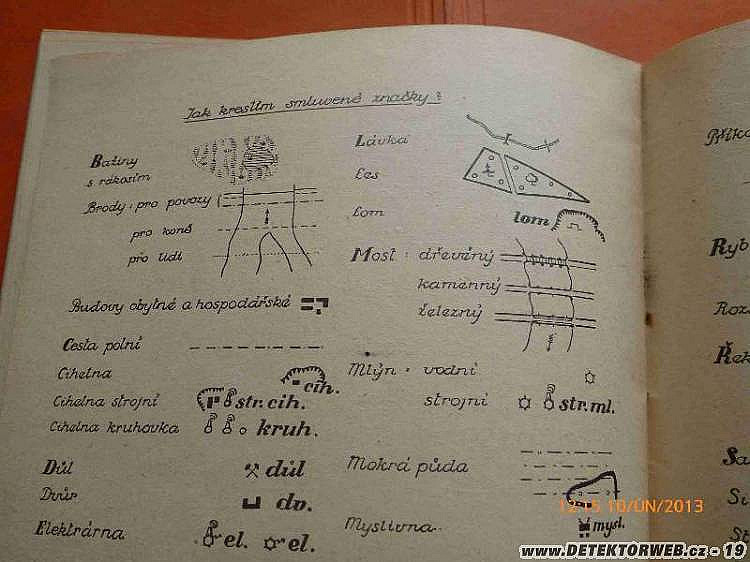 Jak kreslím smluvené značky?
Bažiny
s rákosím
Brody: pro povozy
pro koně
pro lidi
Budovy obytné a hospodářské
Cesta polní
Cihelna cih.
Cihelna strojní str. cih.
Cihelna kruhovka kruh.
Důl důl
Dvůr dv.
Elektrárna el. el.
Lávka
Les
Lom lom
Most: dřevěný
kamenný
železný
Mlýn: vodní
strojní str. ml.
Mokrá půda
Myslivna mysl.
Ryb
Roz
Řek
Sa
Su
St
12:15 10/ÚN/2013
www.DETEKTORWEB.cz - 19